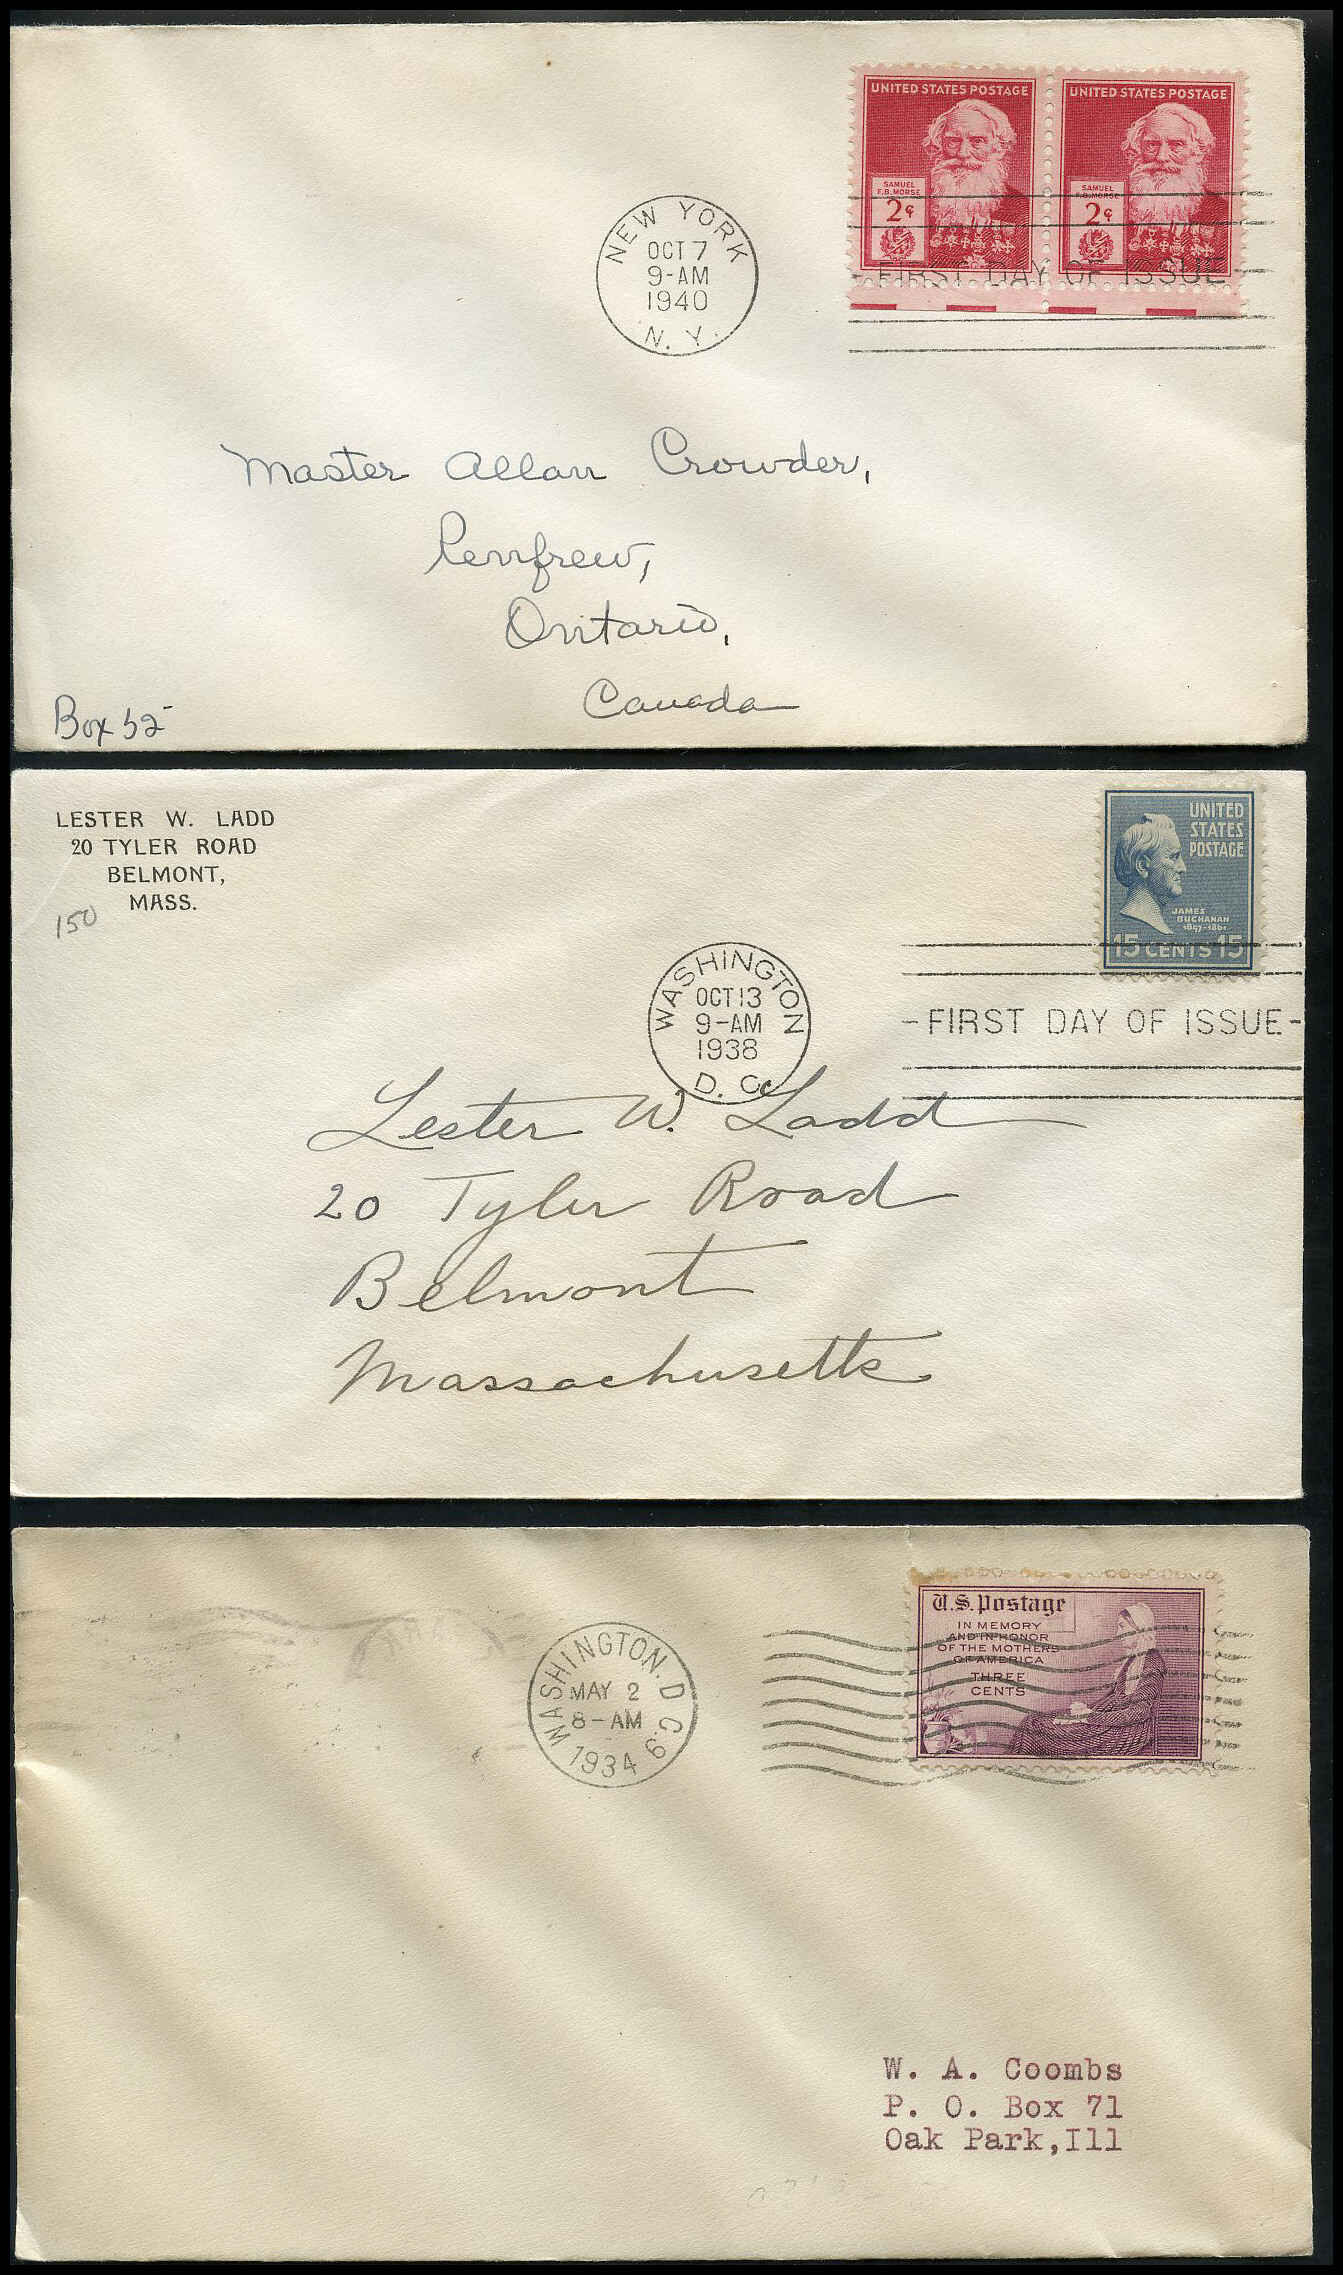 UNITED STATES POSTAGE
SAMUEL
F.B. MORSE
2¢
UNITED STATES POSTAGE
SAMUEL
F.B. MORSE
2¢
NEW YORK
OCT 7
9-AM
1940
N. Y.
FIRST DAY OF ISSUE
Master Allan Crowder,
Renfrew,
Ontario,
Canada
Box 52
LESTER W. LADD
20 TYLER ROAD
BELMONT,
MASS.
150
UNITED
STATES
POSTAGE
JAMES
BUCHANAN
1857-1861
15 CENTS 15
WASHINGTON
OCT 13
9-AM
1938
D. C.
-FIRST DAY OF ISSUE-
Lester W. Ladd
20 Tyler Road
Belmont
Massachusetts
U.S. Postage
IN MEMORY
AND IN HONOR
OF THE MOTHERS
OF AMERICA
THREE
CENTS
WASHINGTON, D.C. 9
MAY 2
8-AM
1934
W. A. Coombs
P. O. Box 71
Oak Park,Ill